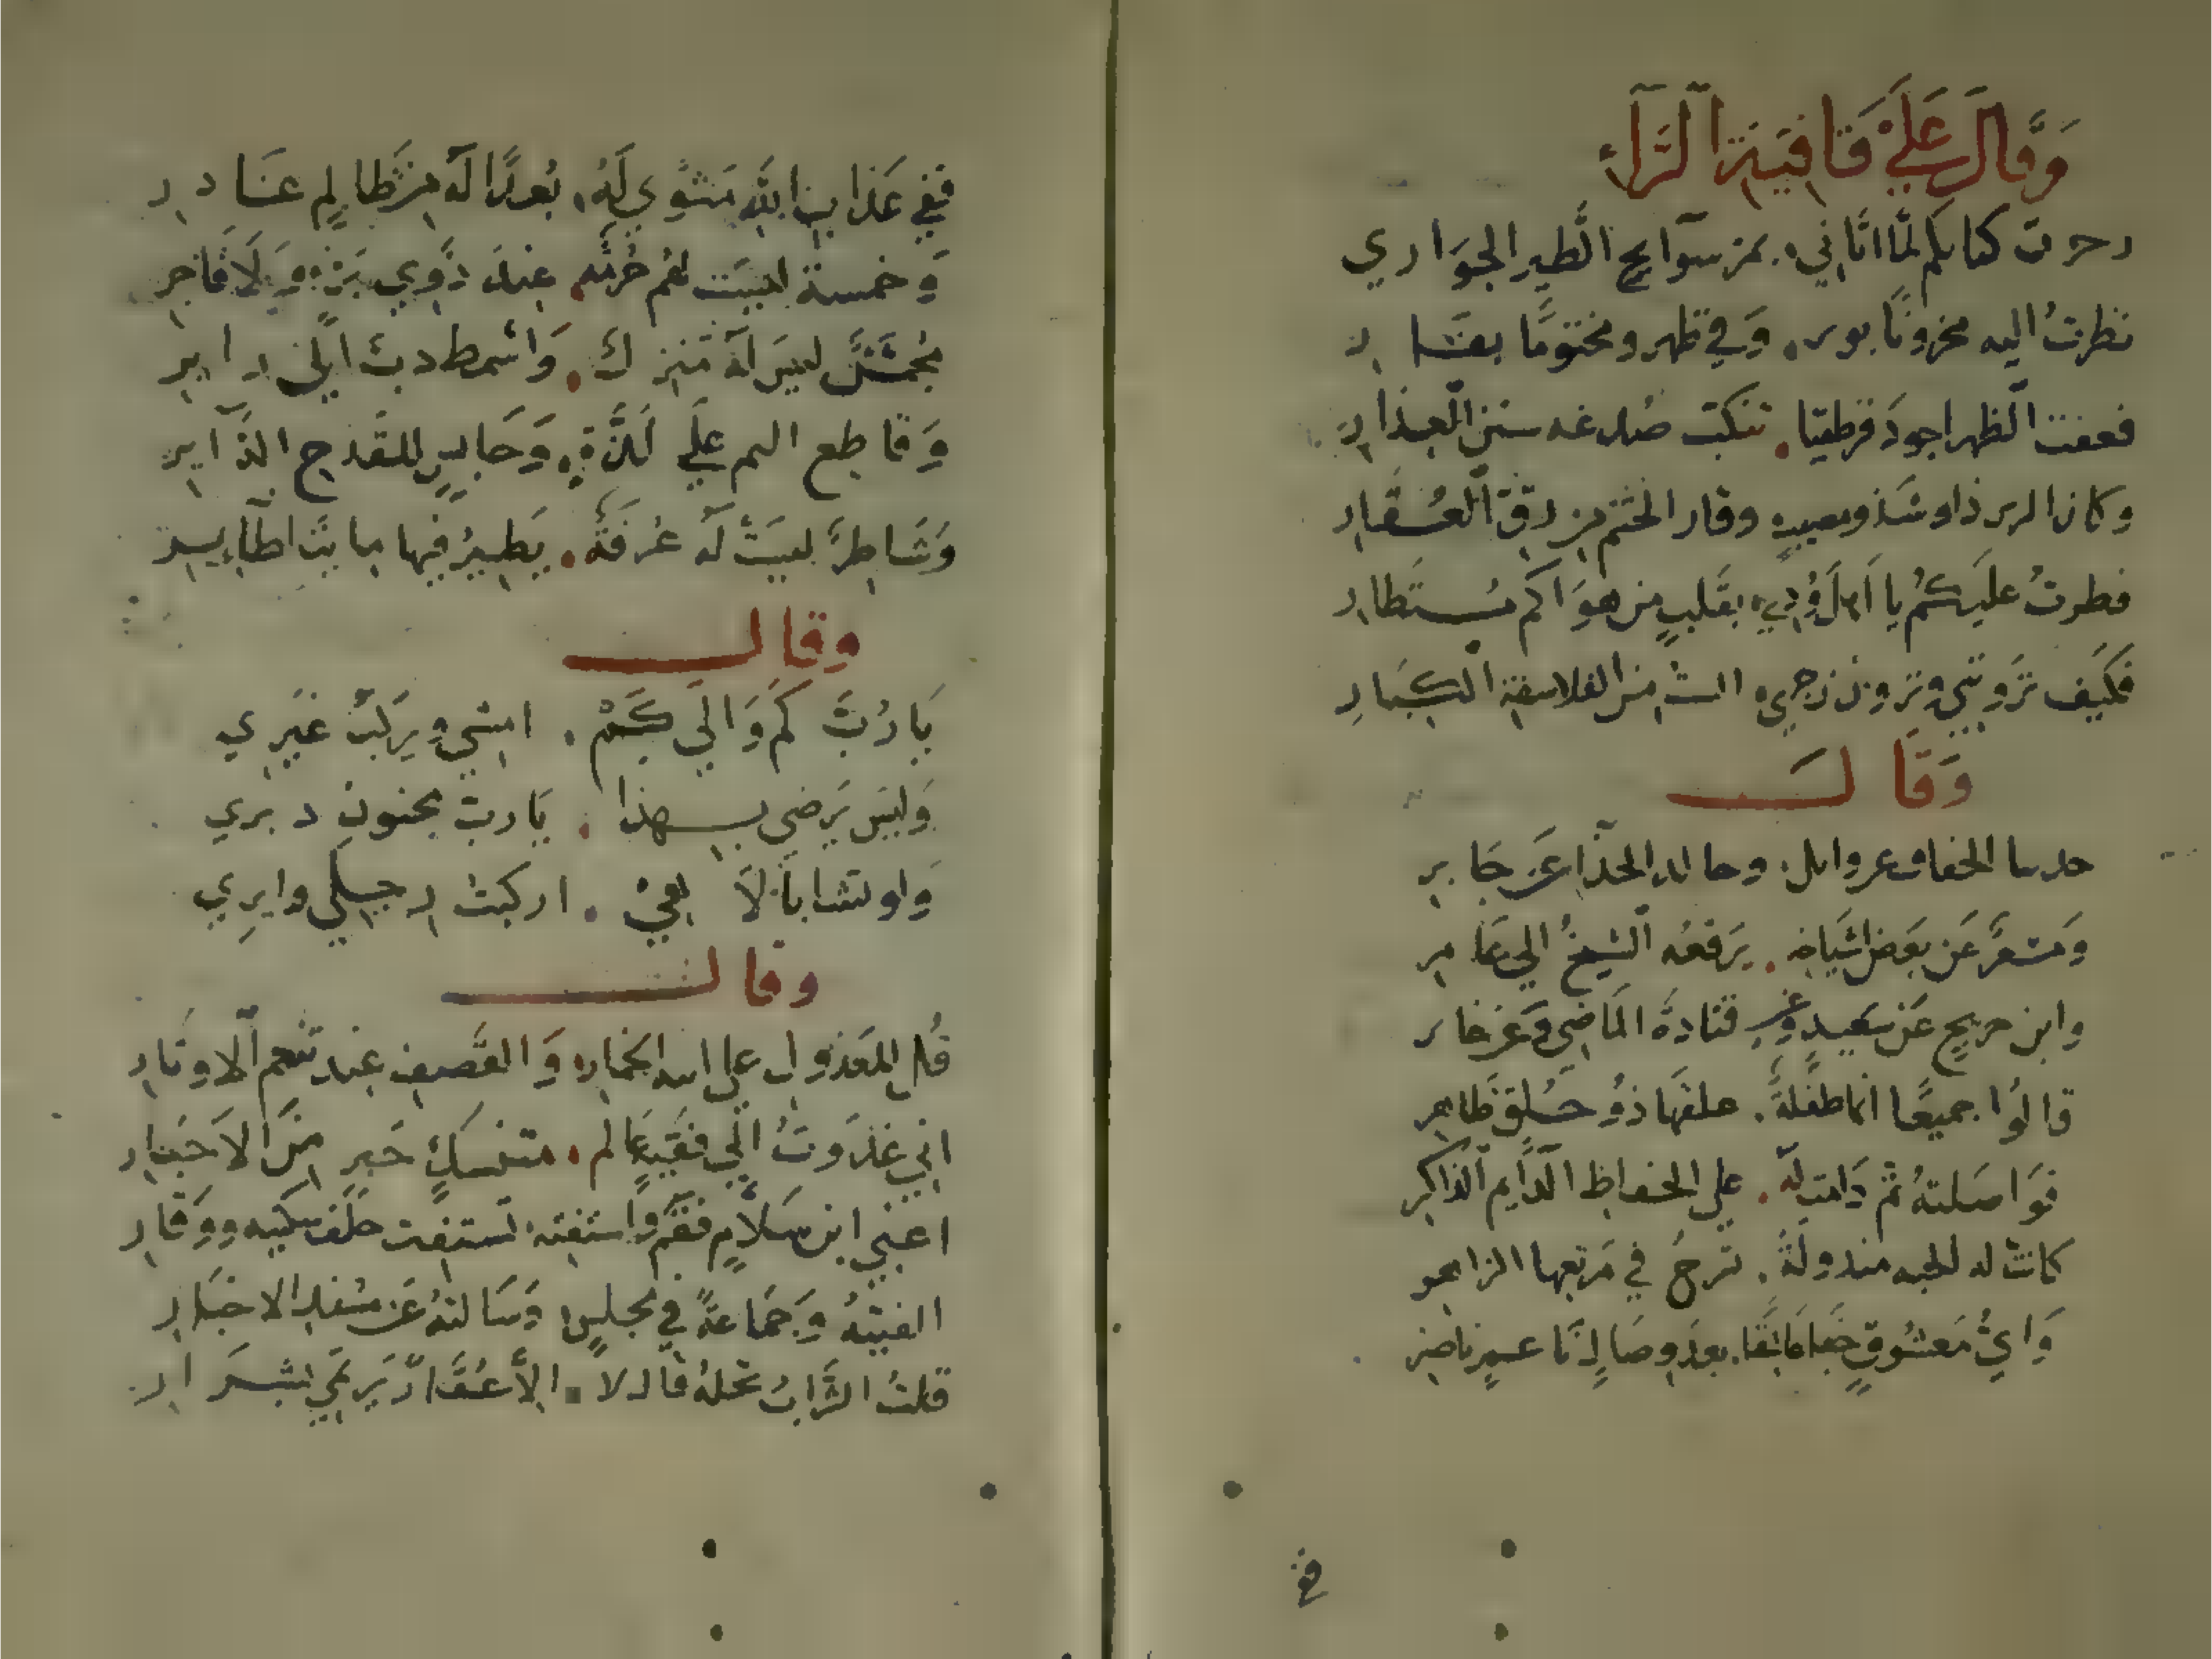 وَقَالَ عَلَيْ قَافِيَةِ الرَّاءِ
زجرت كتابكم لمَّا اتَاني، بمَر سَوآنحِ الطَّيرِ الجوَاري
نظرتُ اليه مخزونًا بزير. وَفي ظهر ومختومًا بقَار
فعفت الظهر اجودَ قرطقيّا. تنكبت صُدغه سنن العِذار
وكان الزير ذا وشذو مصيبٍ وقار الختم من زقّ العُقار
فطرتُ عليكُمُ يا اَهلَ وُدِّي، بقَلبٍ من هوَاكم مُستَطار
فكَيف تَرَونني وترون زجري، الستُ من الفلاسفة الكبَارِ
وَقَالَ
حدثنا الخفاف عن وائل. وخالد الحذّا عَن جَابر
وَمسعَرٌ عَن بَعض اشيَاخه. يَرفعُه الشيخُ الي عَامر
وابن جريجٍ عَن سَعِيدٍ وعن قتادةَ المَاضِي وَعَن خابر
قالُوا جميعًا انما طفلةٌ. علقهَا ذوُ خُلقٍ ظاهر
فوَاصَلتهُ ثمَّ دَامت لَه. علي الحفاظ الدَّايم الذاكر
كانتْ له الجنه مبذولةً. تَرحُ في مَرتعها الزاهر
وَايُّ مَعشُوقٍ جفَا عَاشقًا. بعدَ وصَالٍ نَاعمٍ ناضر
فف
ففي عَذابِ اللهِ مَثوي لَهُ، بُعدًا لَهُ مِن ظالِمٍ غَادر
وَخمسة ليسَت لهُم حُرمَه. عِندَ ذوي بَرٍّ وَلَا فَاجِر
مُجمَّشٌ ليسَ لَه مَنزلٌ. وَاشمط دبّ الي زاير
وَقاطع اليم علي لَذَّةٍ. وَحَابسٍ للقَدح الدَّاير
وَشَاطرٌ ليسَتْ لَه غُرفَةٌ. يَطيرُ فيها مابِنَا طاير
وقال
يَارُبَّ كم وَالي كمْ. امشي ويَركبُ غَيري
وَليسَ يَرضي بهذا. يَارب مجنون ديري
وَاو تشَا بَالَا بغيْ. اركبتْ رجلي وايري
وقال
قُل للعَذول علي ابنه الخمار، وَالقَصفِ عِند تنغم الاوتَار
اني غدَوتُ الي فقيهٍ عَالم. متنسكٍ حَبرٍ مِنَ الاحبَار
اعني ابن سَلّامٍ فقُم واستفته، تستفت حلف سكينه ووقَار
الفيتهُ وَجمَاعةً في مجلسٍ وَسَالتهُ عَن مُسند الاخبَار
قلتُ الشَّرابُ تحلهُ قال لا. الَّا عُقَارًا يَرتمي بشَرَار